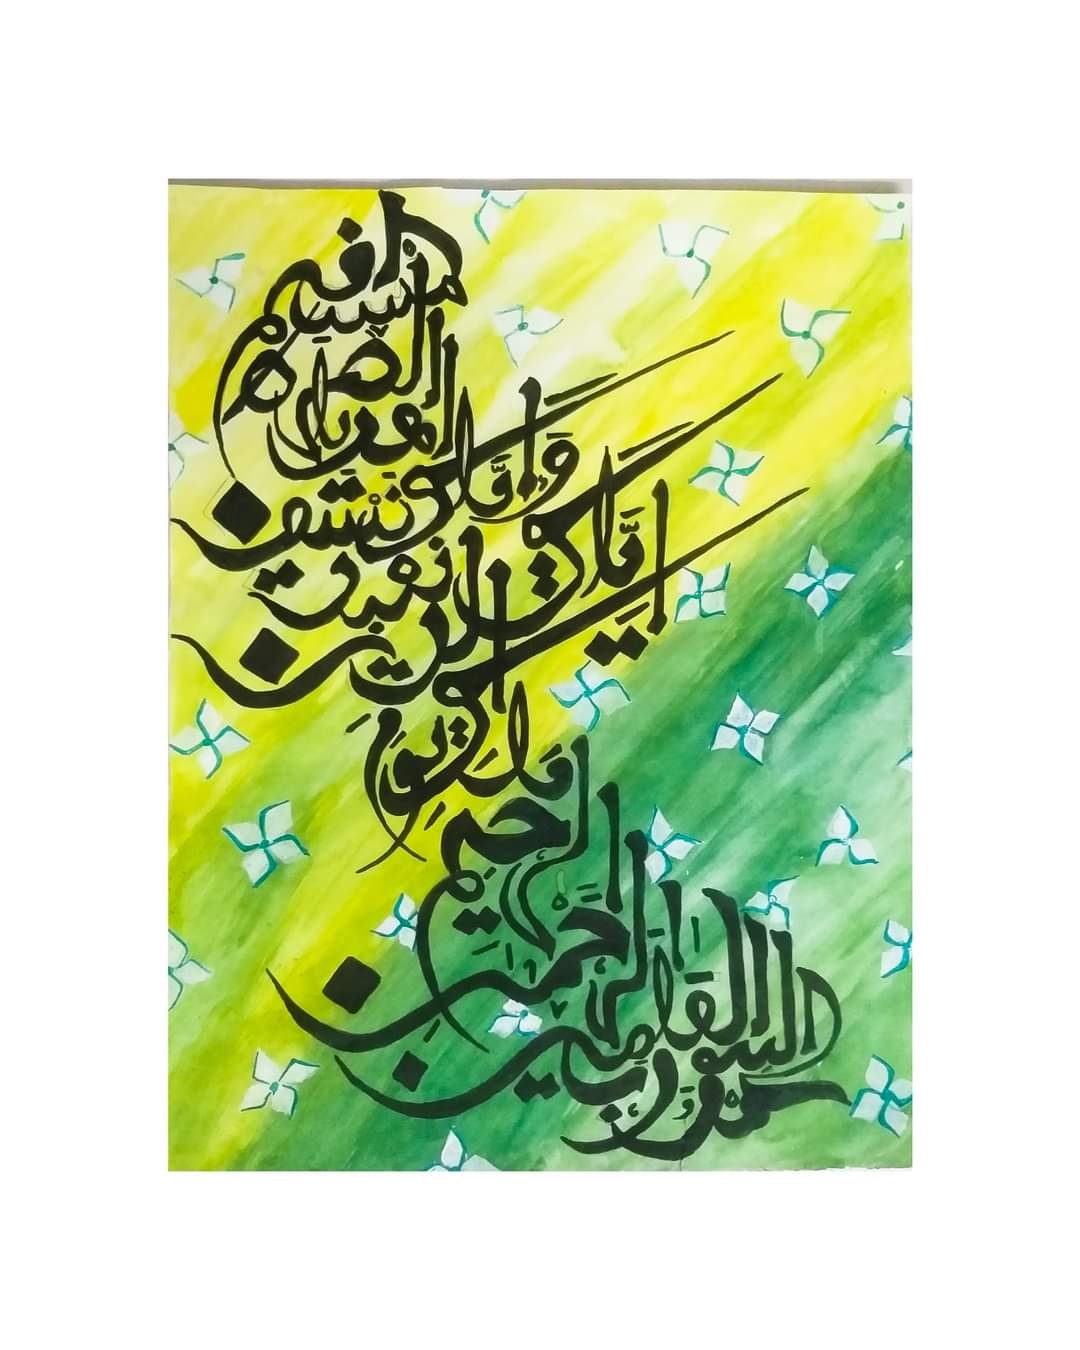 الحمد لله رب العالمين
الرحمن
الرحيم
مالك يوم
الدين
إياك نعبد
وإياك نستعين
اهدنا الصراط
المستقيم